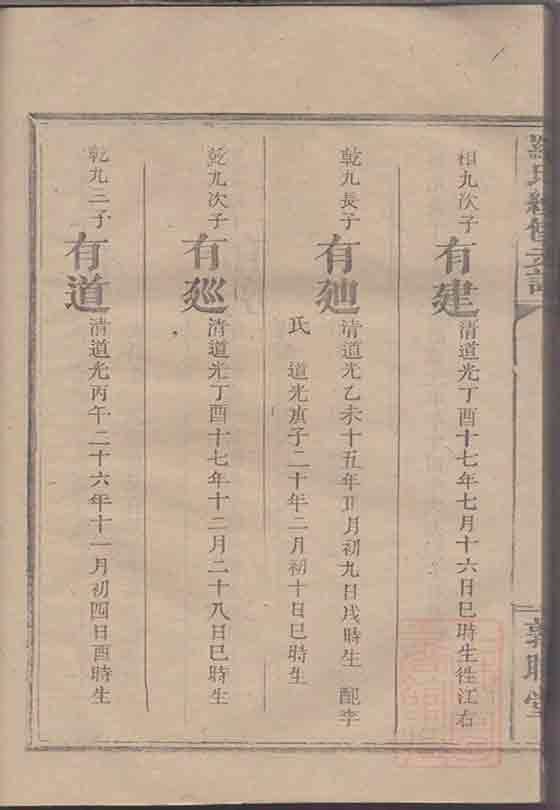 氏
敦睦堂
相九次子 有建 清道光丁酉十七年七月十六日巳時生徃江右
乾九長子 有廸 清道光乙未十五年正月初九日戌時生 配李
氏 道光庚子二十年二月初十日巳時生
乾九次子 有廵 清道光丁酉十七年十二月二十八日巳時生
乾九三子 有道 清道光丙午二十六年十一月初四日酉時生